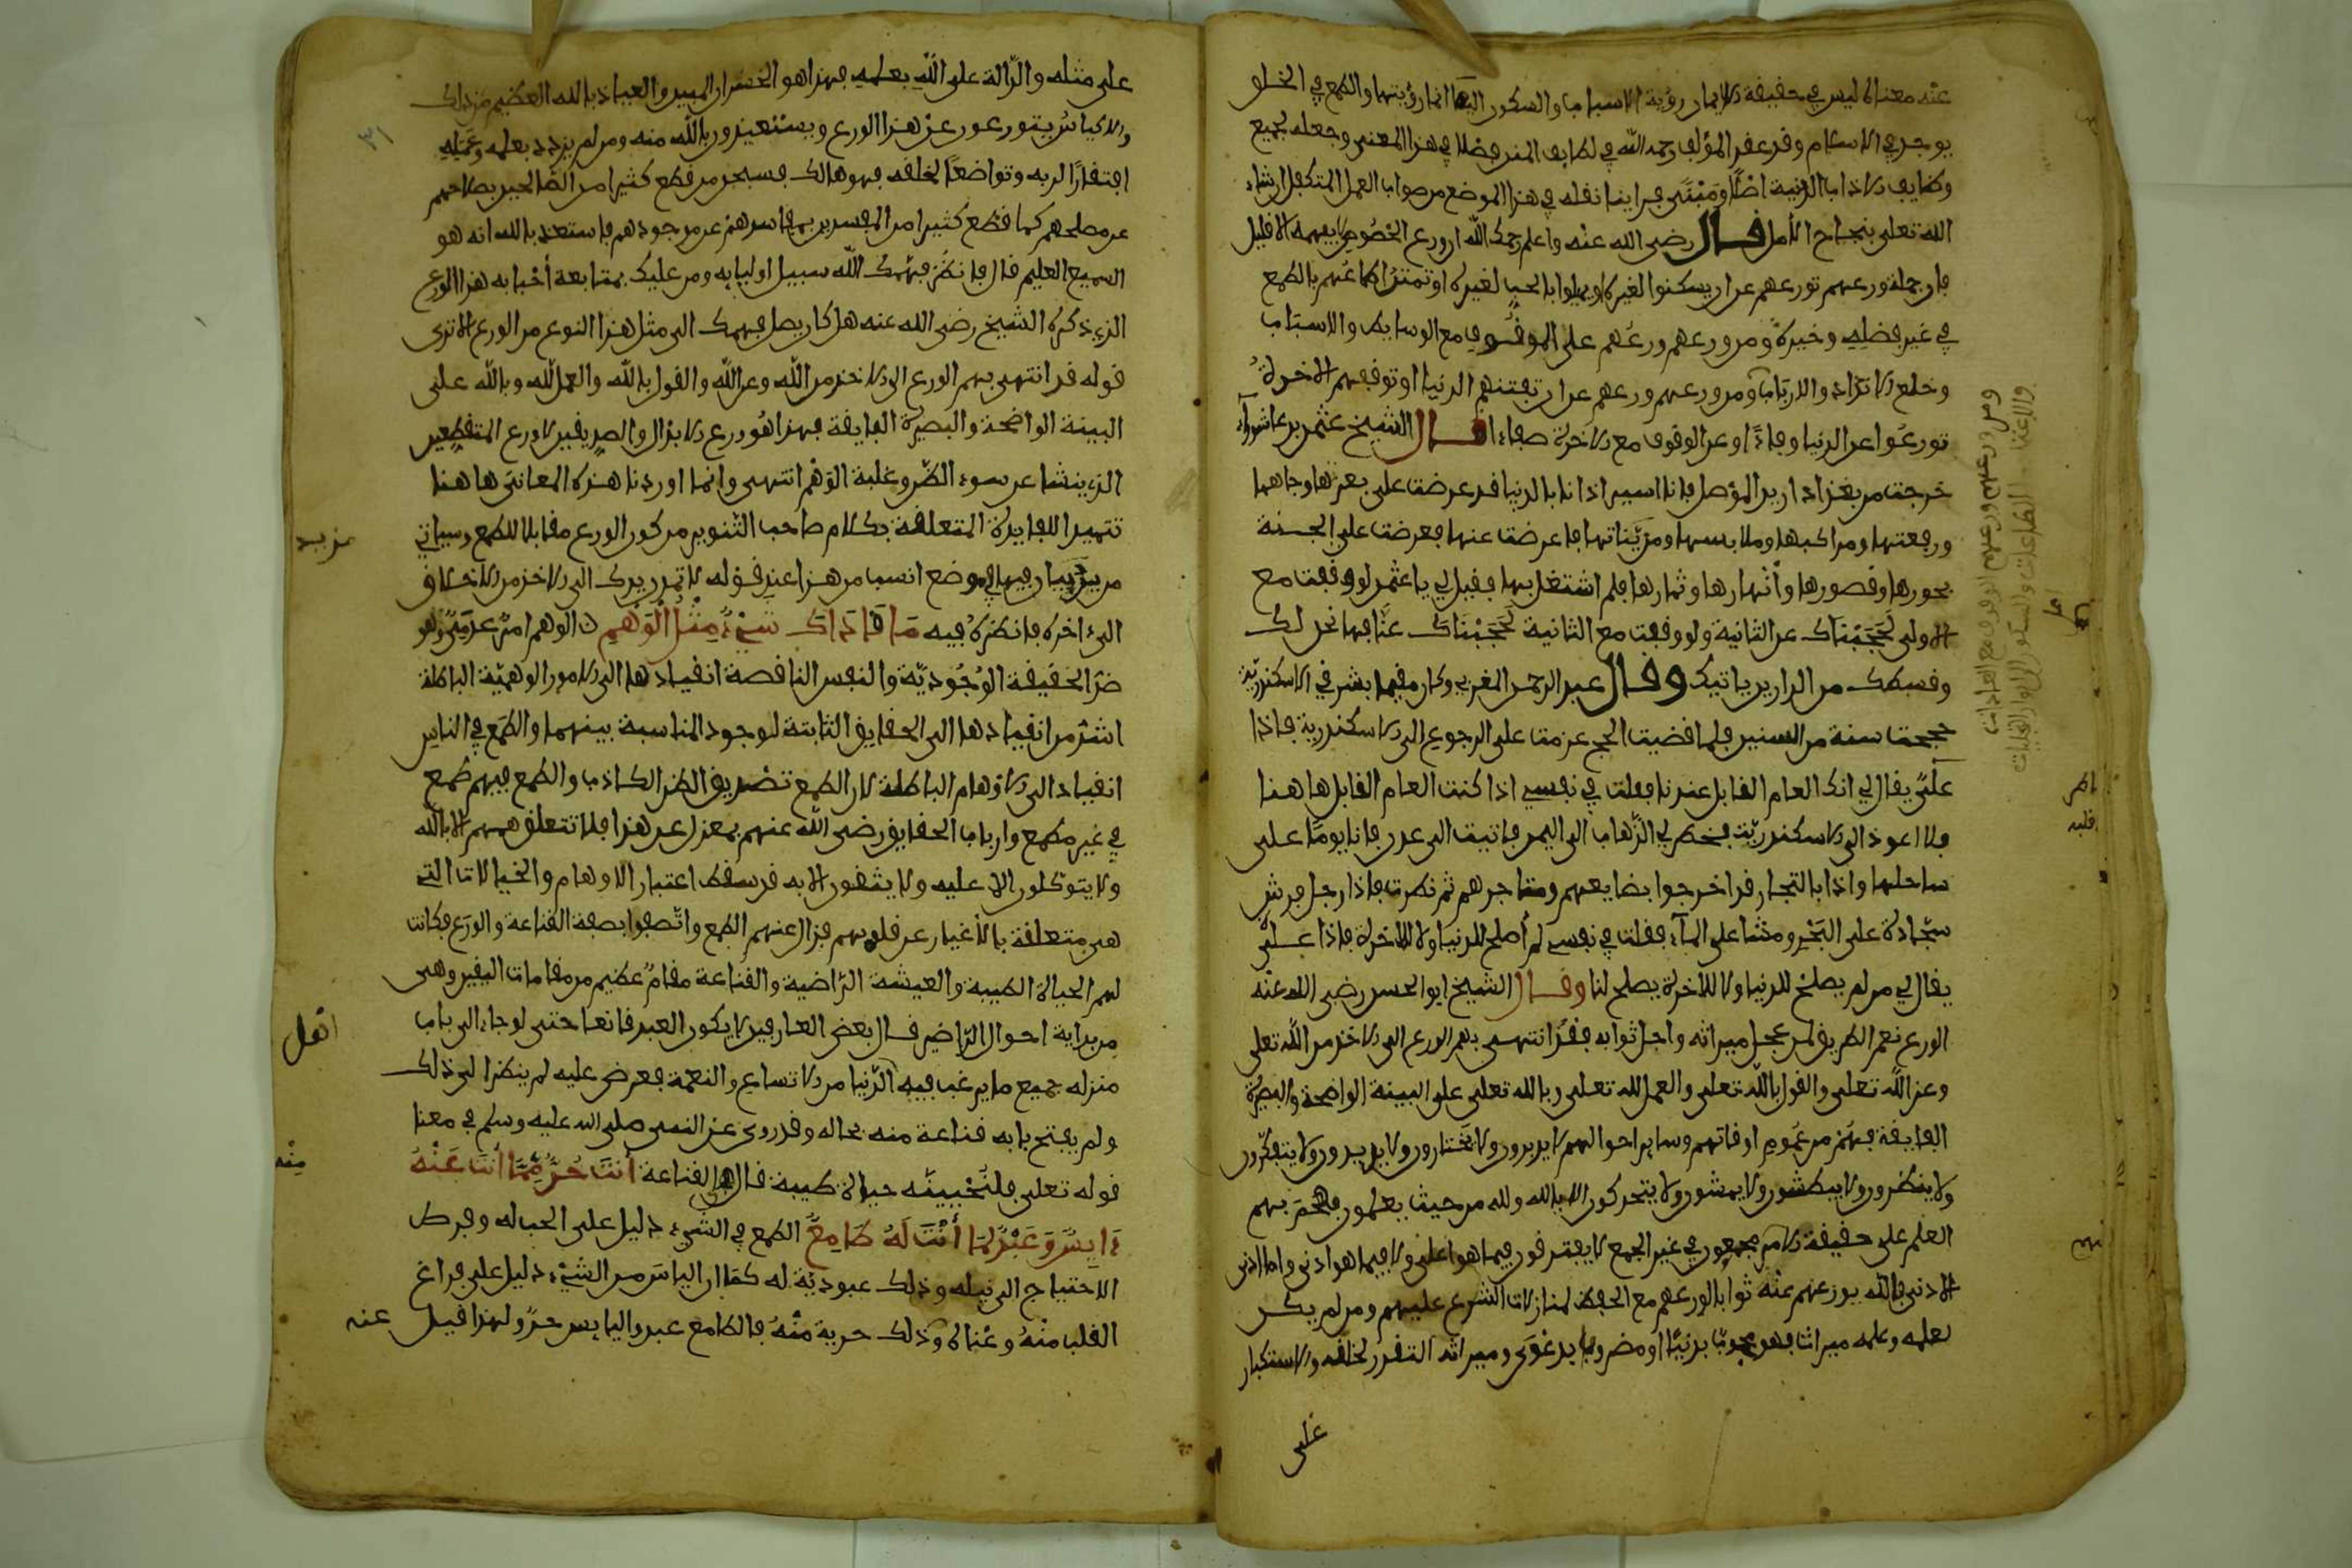 عنه معناه ليس في حقيقة الايمان رؤية الاسباب والسكون اليها انما رؤيتها والطمع في الخلق
يوجد في الاسلام وقد عقد المؤلف رحمه الله في لطايف المنن فصلا في هذا المعنى وجعله لجميع
وظايف الاداب الدينية اصلا ومبنى فراينا نقله في هذا الموضع من صواب العمل المتكفل ان شاء
الله تعلى بنجاح الامل قال رضي الله عنه واعلم رحمك الله ان ورع الخصوص لا يفهمه الا قليل
فان جملة ورعهم تورعهم عن ان يسكنوا لغيره او يميلوا بالحب لغيره او تمتد اطماعهم بالطمع
في غير فضله وخيره ومن ورعهم ورعهم على الوقوف مع الوسايط والاسباب
وخلع الانداد والارباب ومن ورعهم ورعهم عن ان تفتنهم الدنيا او توقفهم الاخرة
تورعوا عن الدنيا وفاء او عن الوقوف مع الاخرة صفاء قال الشيخ عثمن بن عاشوراء
خرجت من بغداد اريد الموصل فانا اسير اذا انا بالدنيا قد عرضت علي بعزها وجاهها
ورفعتها ومراكبها وملابسها ومزيناتها فاعرضت عنها فعرضت علي الجنة
بحورها وقصورها وأنهارها وثمارها فلم اشتغل بها فقيل لي يا عثمن لو وقفت مع
الاولى لحجبناك عن الثانية ولو وقفت مع الثانية لحجبناك عنا فها نحن لك
وقسطك من الدارين ياتيك وقال عبد الرحمن المغربي وكان مقيما بشرقي الاسكندرية
حججت سنة من السنين فلما قضيت الحج عزمت على الرجوع الى الاسكندرية فاذا
علي يقال لي انك العام القابل عندنا فقلت في نفسي اذا كنت العام القابل هاهنا
فلا اعود الى الاسكندرية فخطر لي الذهاب الى اليمن فاتيت الى عدن فانا يوما على
ساحلها واذا بالتجار قد اخرجوا بضايعهم ومتاجرهم ثم نظرت فاذا رجل فرش
سجادة على البحر ومشا على الماء فقلت في نفسي لم أصلح للدنيا ولا للاخرة فاذا علي
يقال لي من لم يصلح للدنيا ولا للاخرة يصلح لنا وقال الشيخ ابو الحسن رضي الله عنه
الورع نعم الطريق لمن عجل ميراثه واجل ثوابه فقد انتهى بهم الورع الى الاخذ من الله تعلى
وعن الله تعلى والقول بالله تعلى والعمل لله تعلى وبالله تعلى على البينة الواضحة والبصيرة
الفايقة فهم من عموم اوقاتهم وساير احوالهم لا يدبرون ولا يختارون ولا يريدون ولا يتفكرون
ولا ينظرون ولا يبطشون ولا يمشون ولا يتحركون الا بالله ولله من حيث يعلمون هجم بهم
العلم على حقيقة الامر فهم مجموعون في غير الجمع لا يفترقون فيما هو اعلى ولا فيما هو ادنى واما ادنى
الادنى فالله يوزعهم عنه ثوابا لورعهم مع الحفظ لمنازلات الشرع عليهم ومن لم يكن
لعلمه وعمله ميراث فهو محجوب بدنيا او مصروف بدعوى وميراثه التعزز لخلقه والاستكبار
على
ومن ورعهم ورعهم الوقوف مع العادات
والاعتماد على الطاعات والسكون الى انوار التجليات
على مثله والدالة على الله بعلمه فهذا هو الخسران المبين والعياذ بالله العظيم من ذلك
والاكياس يتورعون عن هذا الورع ويستعيذون بالله منه ومن لم يزدد بعلمه وعمله
افتقارا لربه وتواضعا لخلقه فهو هالك فسبحن من قطع كثيرا من الصالحين بصلاحهم
عن مصلحهم كما قطع كثيرا من المفسدين بمفاسدهم عن موجدهم فاستعذ بالله انه هو
السميع العليم قال فانظر فهمك الله سبيل اوليايه ومن عليك بمتابعة أحبابه هذا الورع
الذي ذكره الشيخ رضي الله عنه هل كان يصل فهمك الى مثل هذا النوع من الورع الا ترى
قوله قد انتهى بهم الورع الى الاخذ من الله وعن الله والقول بالله والعمل لله وبالله على
البينة الواضحة والبصيرة الفايقة فهذا هو ورع الابدال والصديقين لا ورع المتنطعين
الذي ينشا عن سوء الظن وغلبة الوهم انتهى وانما اوردنا هذه المعاني هاهنا
تتميما للفايدة المتعلقة بكلام صاحب التنوير من كون الورع مقابلا للطمع وسياتي
مزيد بيان فيها في موضع انسب من هذا عند قوله لا تمدن يدك الى الاخذ من الخلايق
الى اخره فانظره فيه ما قادك شيء مثل الوهم ن الوهم امر عدمي وهو
ضد الحقيقة الوجودية والنفس الناقصة انقيادها الى الامور الوهمية الباطلة
اشد من انقيادها الى الحقايق الثابتة لوجود المناسبة بينهما والطمع في الناس
انقياد الى الاوهام الباطلة لان الطمع تصديق الظن الكاذب والطمع فيهم طمع
في غير مطمع وارباب الحقايق رضي الله عنهم بمعزل عن هذا فلا تتعلق هممهم الا بالله
ولا يتوكلون الا عليه ولا يثقون الا به قد سقط اعتبار الاوهام والخيالات التي
هي متعلقة بالأغيار عن قلوبهم فزال عنهم الطمع واتصفوا بصفة القناعة والورع فكانت
لهم الحياة الطيبة والعيشة الراضية والقناعة مقام عظيم من مقامات اليقين وهي
من بداية احوال الراضين قال بعض العارفين لا يكون العبد قانعا حتى لو جاء الى باب
منزله جميع ما يرغب فيه الدنيا من الاتساع والنعمة فعرض عليه لم ينظر الى ذلك
ولم يفتح بابه قناعة منه بحاله وقد روى عن النبي صلى الله عليه وسلم في معنا
قوله تعلى فلنحيينه حياة طيبة قال هي القناعة أنت حر مما أنت عنه
ءايس وعبد لما أنت له طامع الطمع في الشيء دليل على الحب له وفرط
الاحتياج الى نيله وذلك عبودية له كما ان الياس من الشيء دليل على فراغ
القلب منه وغناه عنه وذلك حرية منه فالطامع عبد واليايس حر ولهذا قيل
مزيد
انقل
منه
٣١